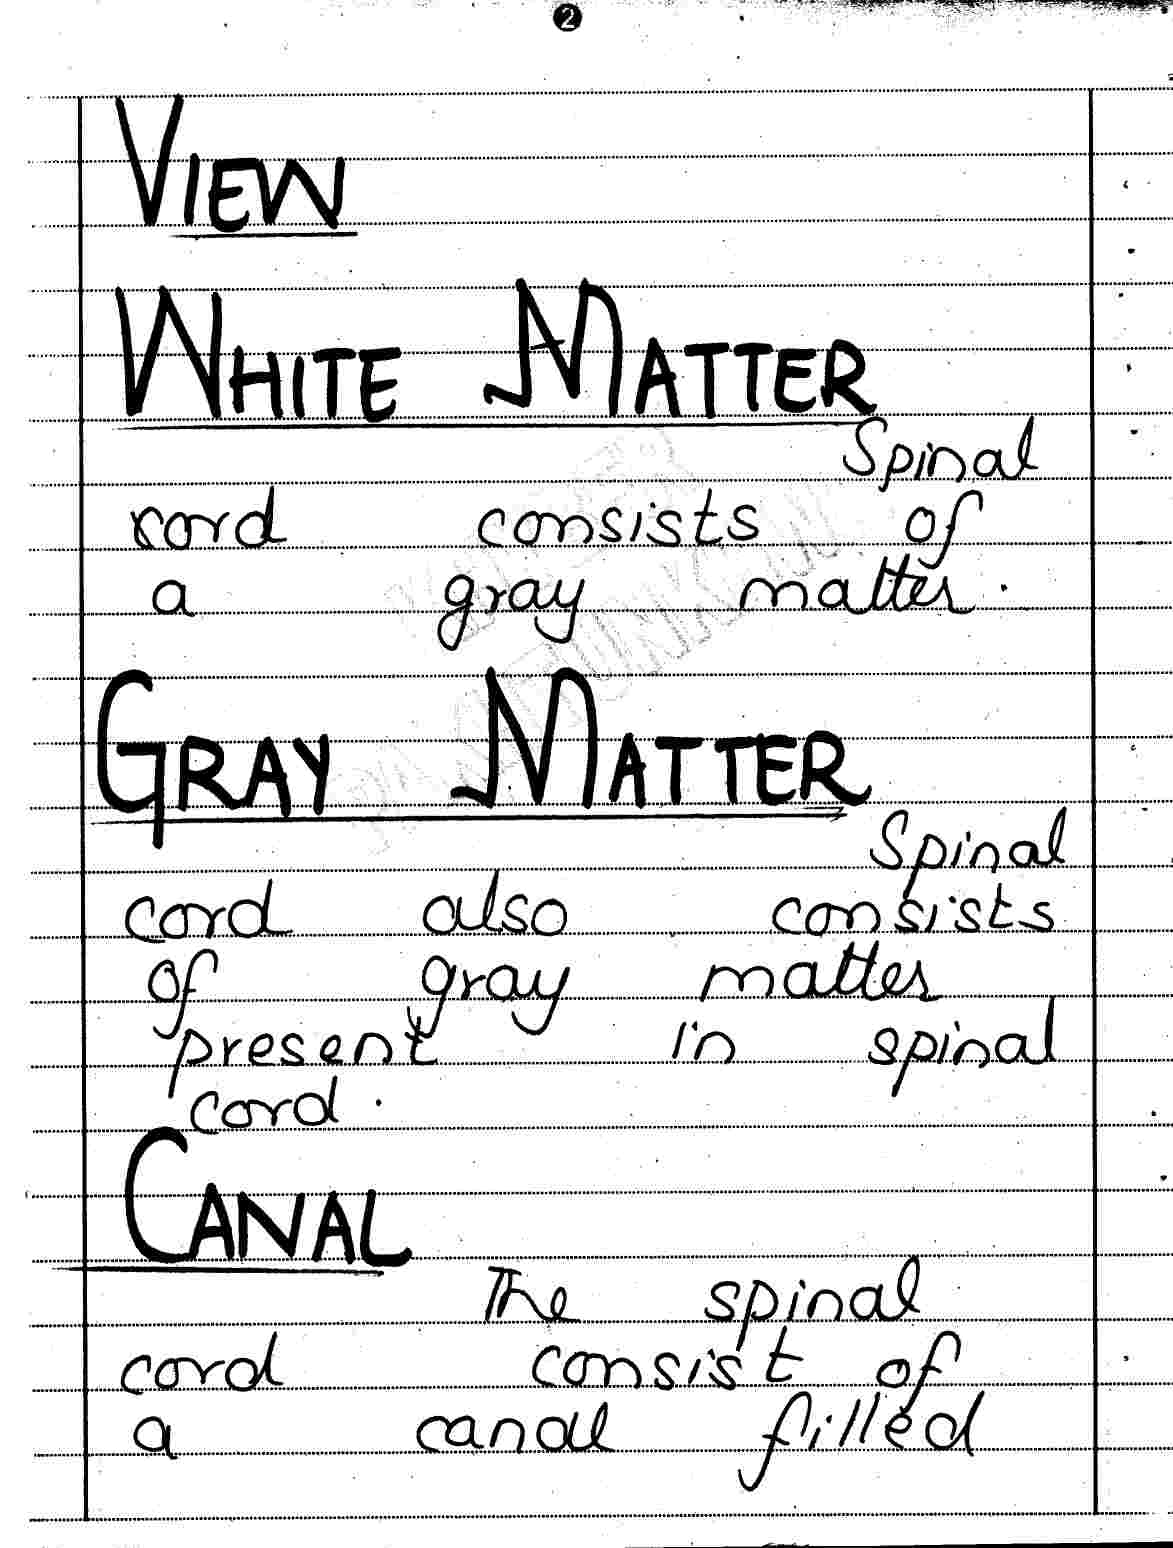 2
VIEW
WHITE MATTER
Spinal
cord consists of
a gray matter.
GRAY MATTER
Spinal
cord also consists
of gray matter
present in spinal
cord.
CANAL
The spinal
cord consist of
a canal filled